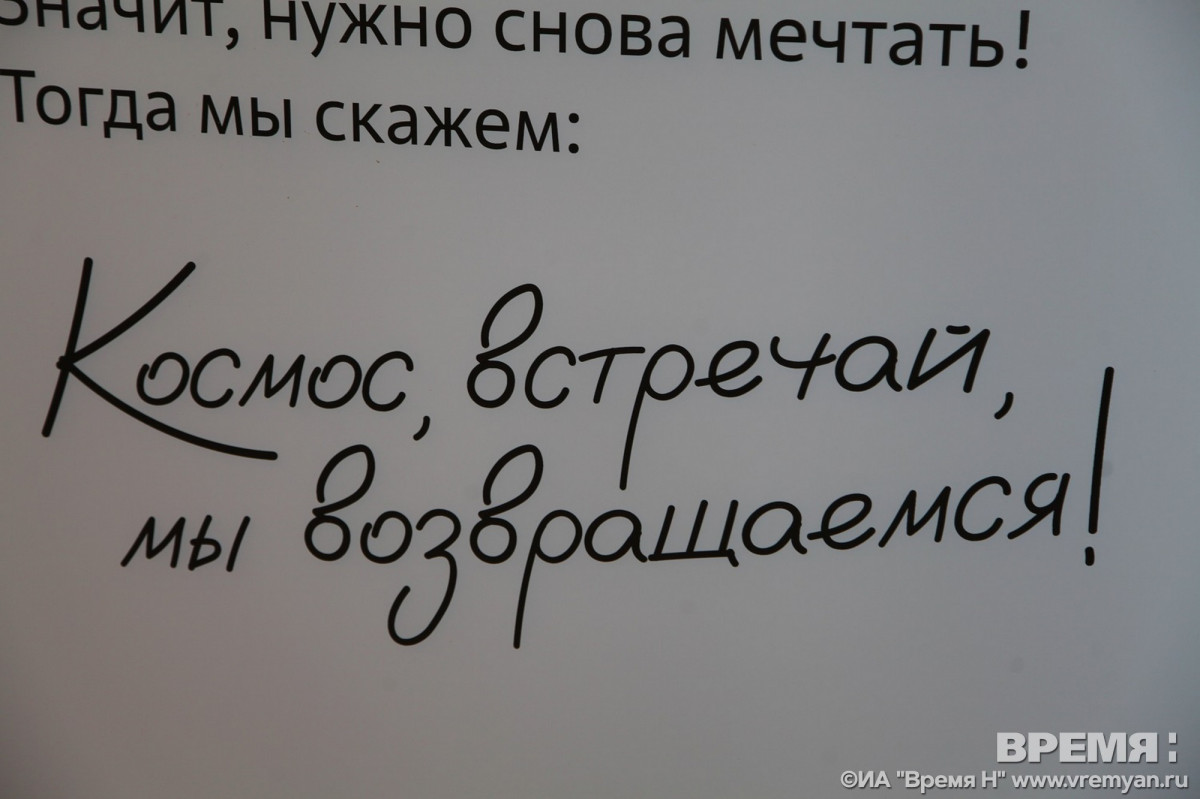 Значит, нужно снова мечтать!
Тогда мы скажем:
Космос, встречай,
мы возвращаемся!
ВРЕМЯ:
©ИА "Время Н" www.vremyan.ru